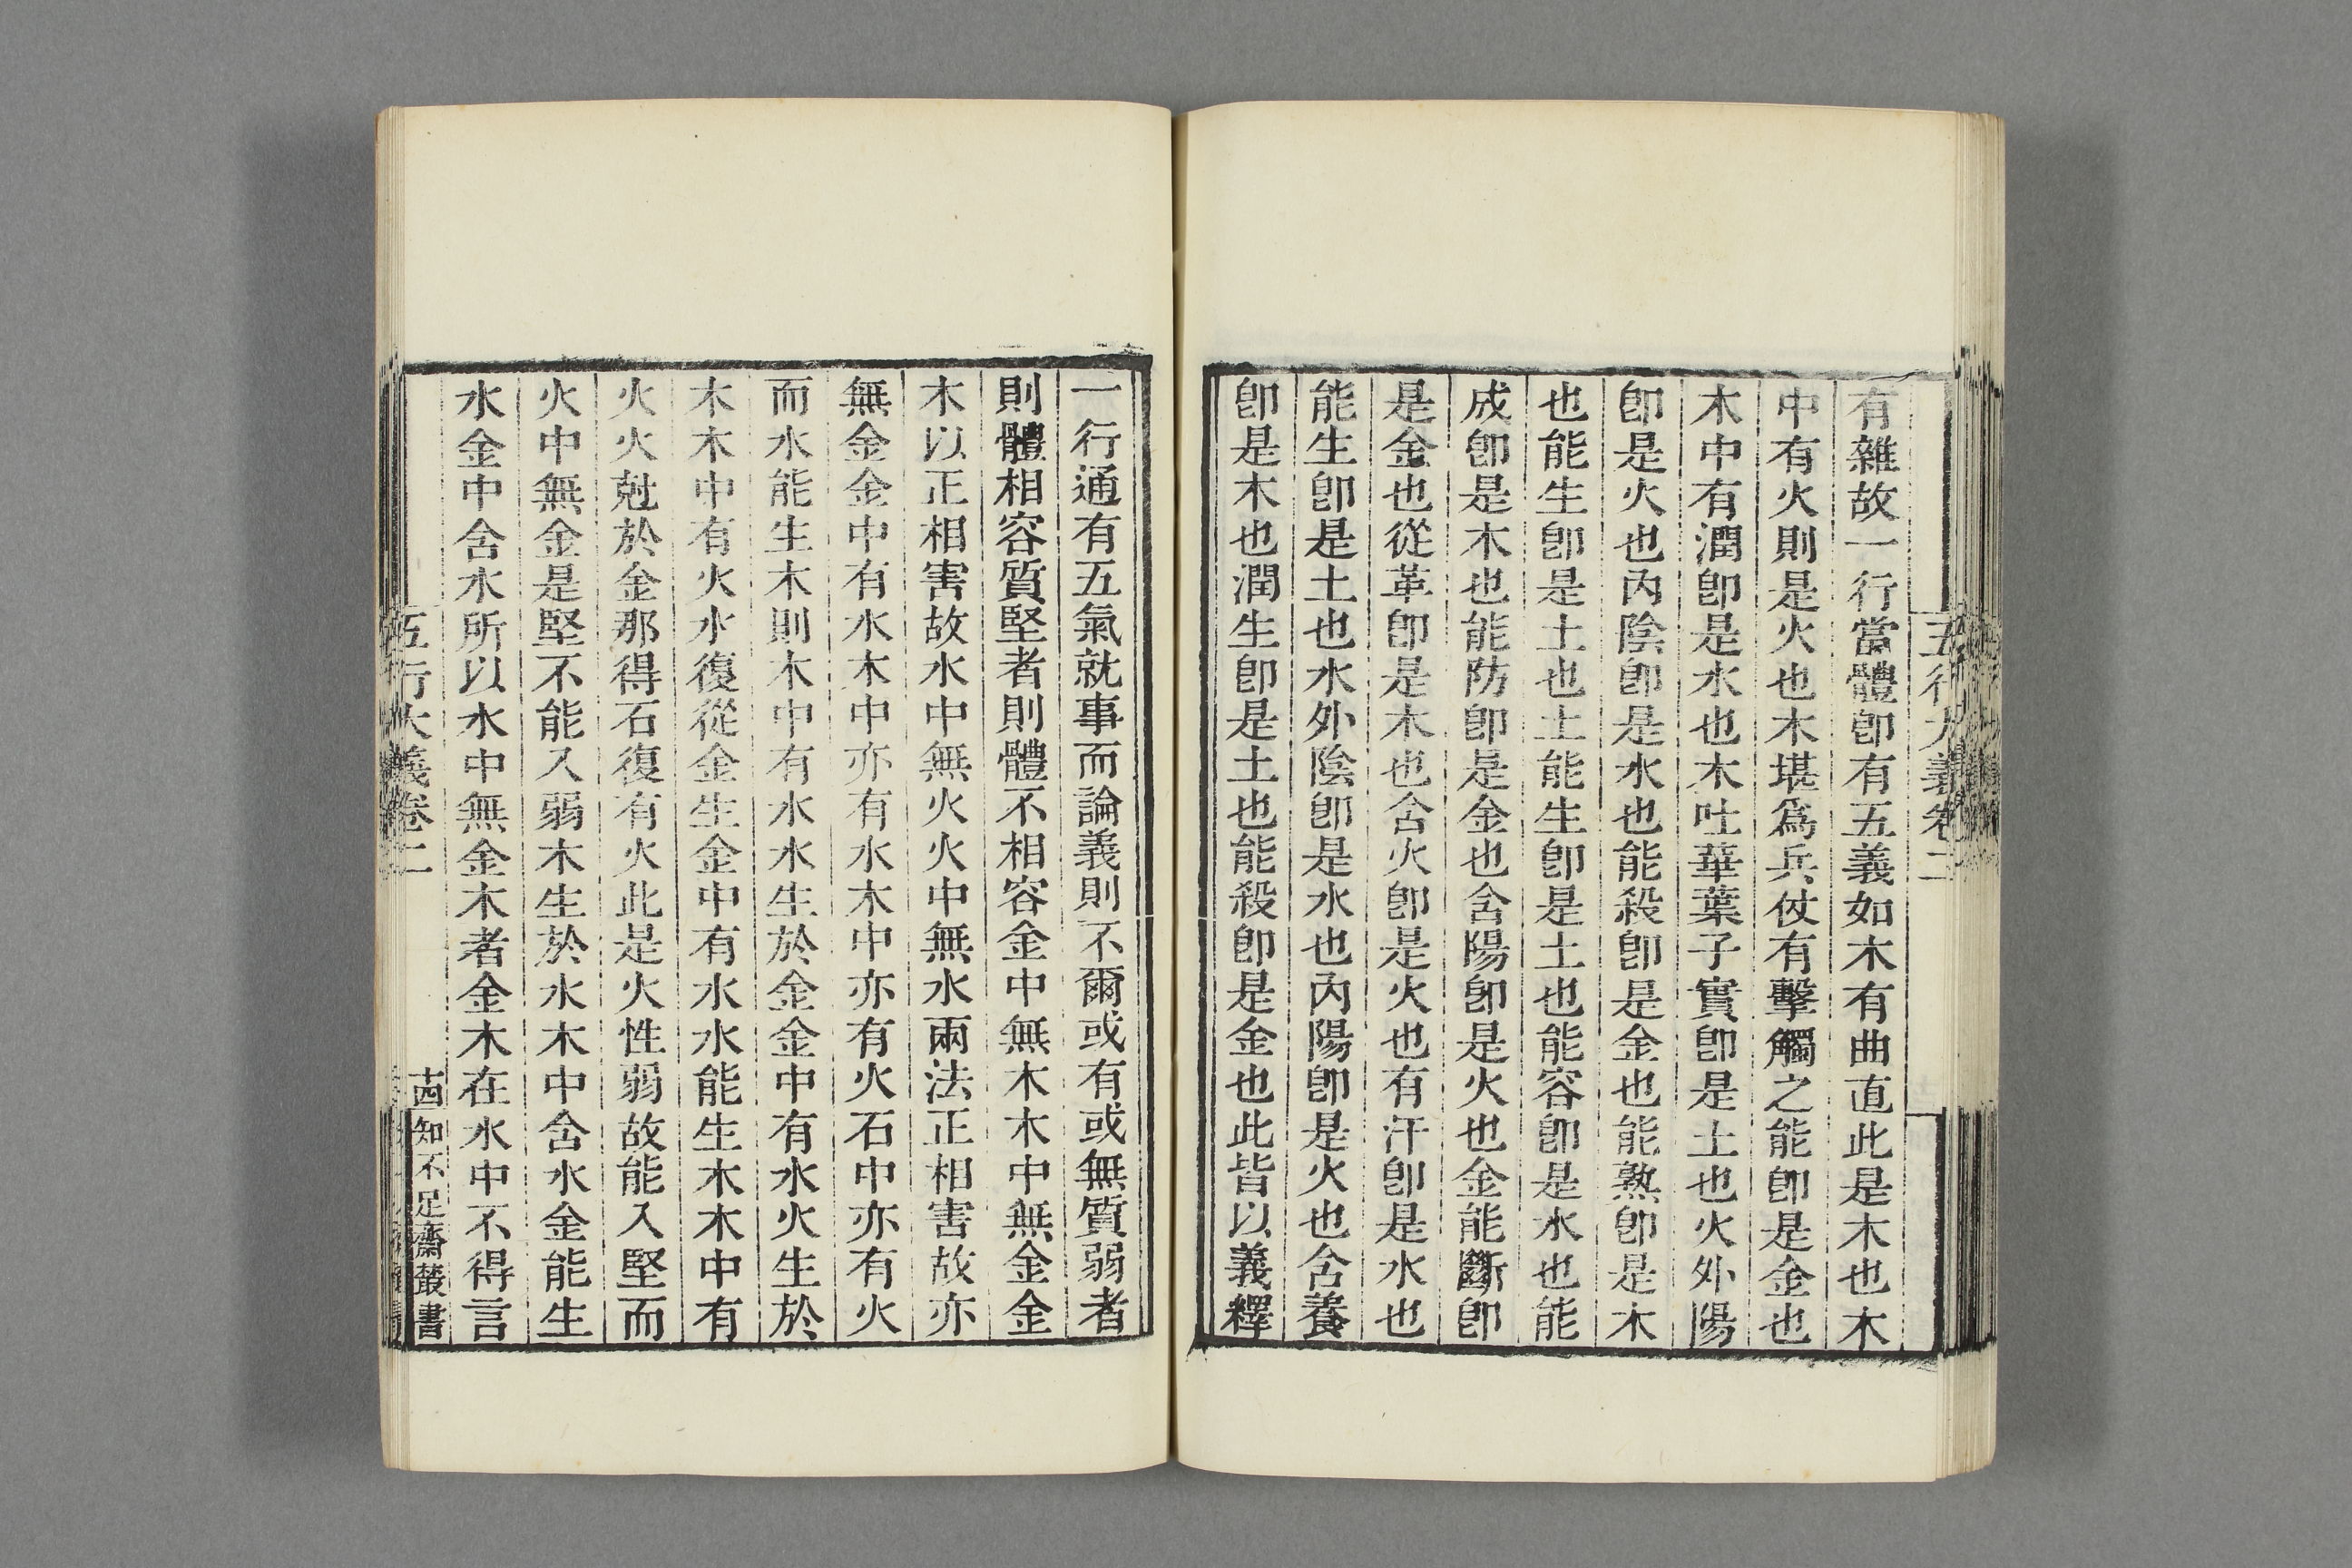 五行大義卷二
有雜故一行當體卽有五義如木有曲直此是木也木
中有火則是火也木堪爲兵仗有擊觸之能卽是金也
木中有潤卽是水也木吐華葉子實卽是土也火外陽
卽是火也內陰卽是水也能殺卽是金也能熟卽是木
也能生卽是土也土能生卽是土也能容卽是水也能
成卽是木也能防卽是金也含陽卽是火也金能斷卽
是金也從革卽是木也含火卽是火也有汗卽是水也
能生卽是土也水外陰卽是水也內陽卽是火也含養
卽是木也潤生卽是土也能殺卽是金也此皆以義釋
一行通有五氣就事而論義則不爾或有或無質弱者
則體相容質堅者則體不相容金中無木木中無金金
木以正相害故水中無火火中無水兩法正相害故亦
無金金中有水木中亦有水木中亦有火石中亦有火
而水能生木則木中有水水生於金金中有水火生於
木木中有火水復從金生金中有水水能生木木中有
火火尅於金那得石復有火此是火性弱故能入堅而
火中無金是堅不能入弱木生於水木中含水金能生
水金中含水所以水中無金木者金木在水中不得言
五行大義卷二
知不足齋叢書